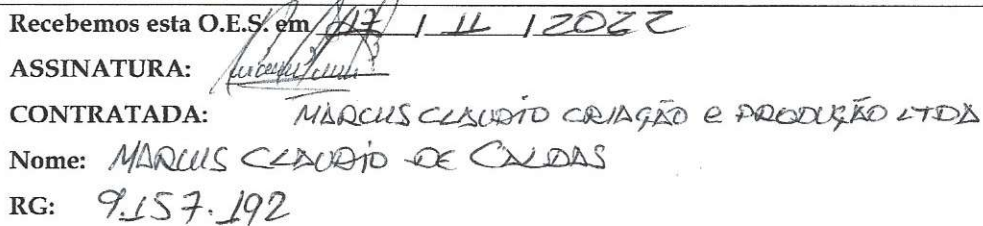 Recebemos esta O.E.S. em 17 / 11 / 2022
ASSINATURA:
CONTRATADA: MARCUS CLAUDIO CRIAÇÃO e PRODUÇÃO LTDA
Nome: MARCUS CLAUDIO DE CALDAS
RG: 9.157.192